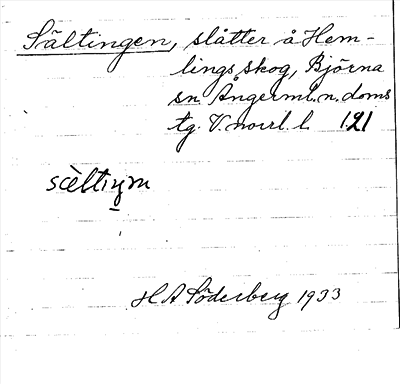 Sältingen, slåtter å Hem-
lings skog, Björna
sn Ångerml. n. doms
tg. V. norrl. l. 121
sèltiŋn
H A Söderberg 1933